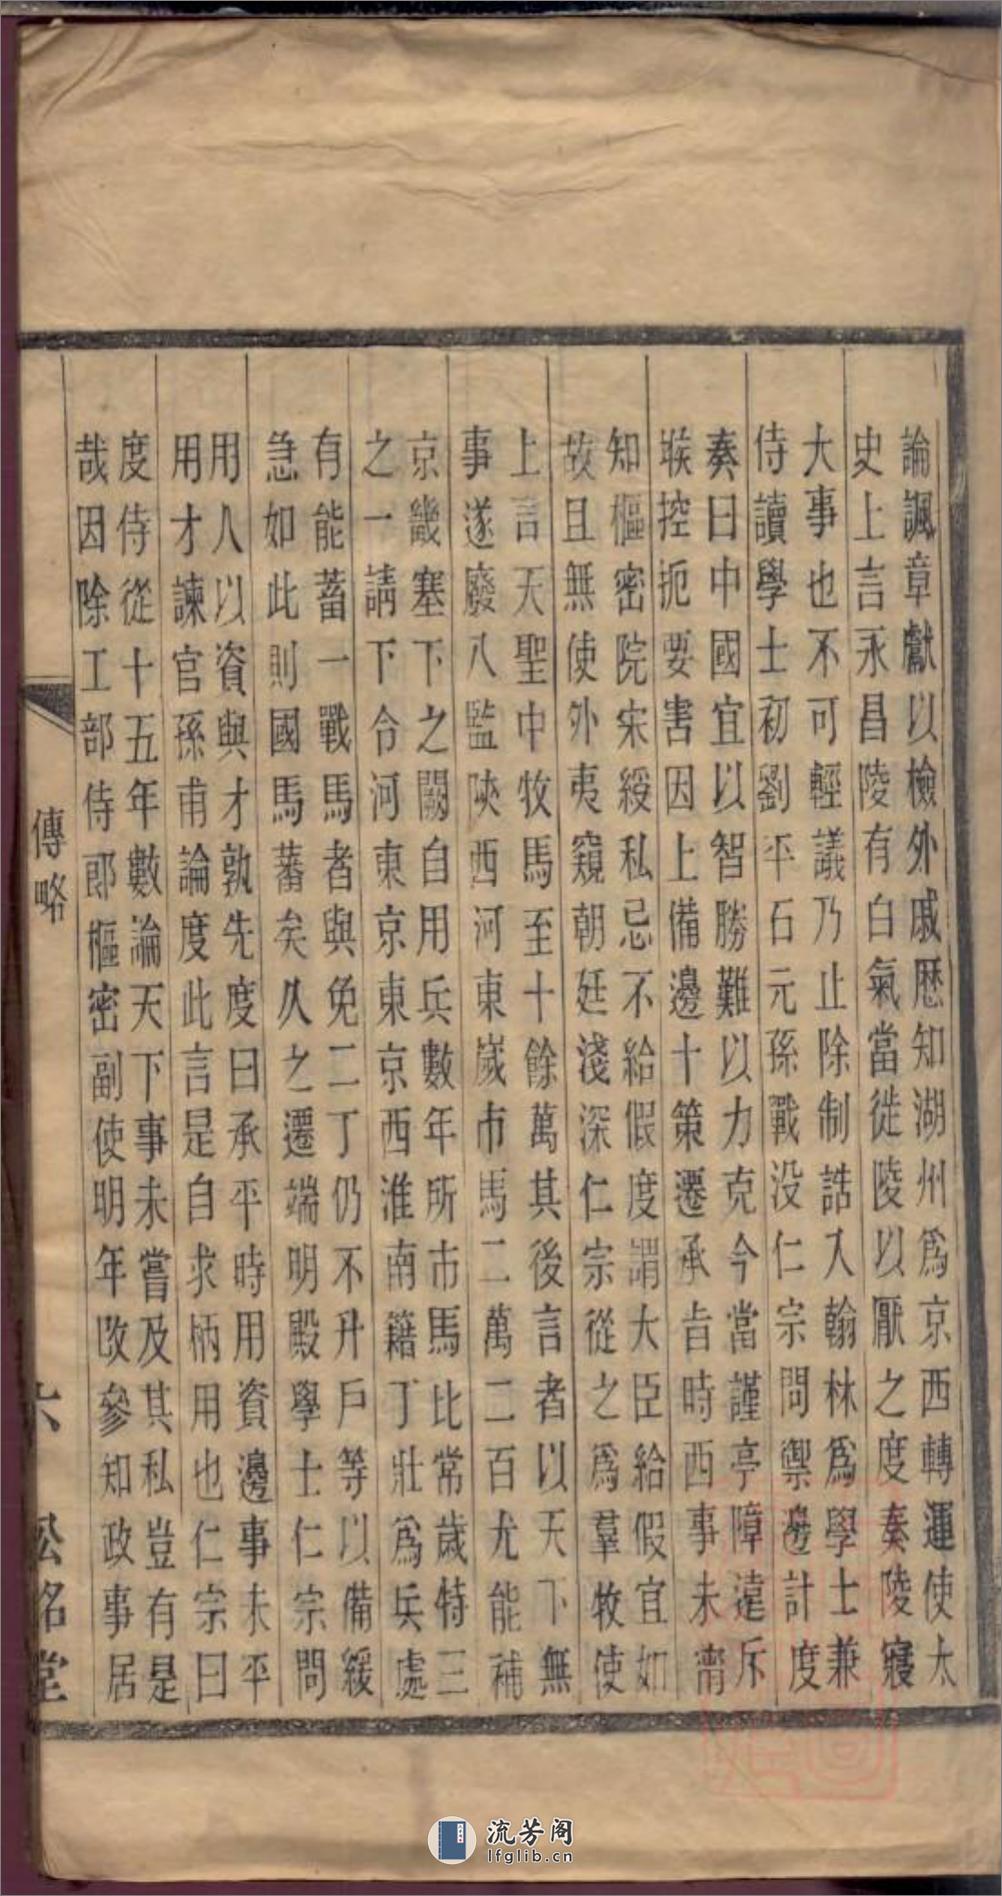 論諷章獻以檢外戚歷知湖州爲京西轉運使太
史上言永昌陵有白氣當徙陵以厭之度奏陵寢
大事也不可輕議乃止除制誥入翰林爲學士兼
侍讀學士初劉平石元孫戰没仁宗問禦邊計度
奏曰中國宜以智勝難以力克今當謹亭障遠斥
堠控扼要害因上備邊十策遷承旨時西事未濟
知樞密院宋綬私忌不給假度謂大臣給假宜如
故且無使外夷窺朝廷淺深仁宗從之爲羣牧使
上言天聖中牧馬至十餘萬其後言者以天下無
事遂廢八監陝西河東歲市馬二萬二百尤能補
京畿塞下之闕自用兵數年所市馬比常歲特三
之一請下令河東京東京西淮南籍丁壯爲兵處
有能蓄一戰馬者與免二丁仍不升戶等以備緩
急如此則國馬蕃矣久之遷端明殿學士仁宗問
用人以資與才孰先度曰承平時用資邊事未平
用才諫官孫甫論度此言是自求柄用也仁宗曰
度侍從十五年數論天下事未嘗及其私豈有是
哉因除工部侍郎樞密副使明年改參知政事居
傳略
六
堂
流芳阁
lfglib.cn